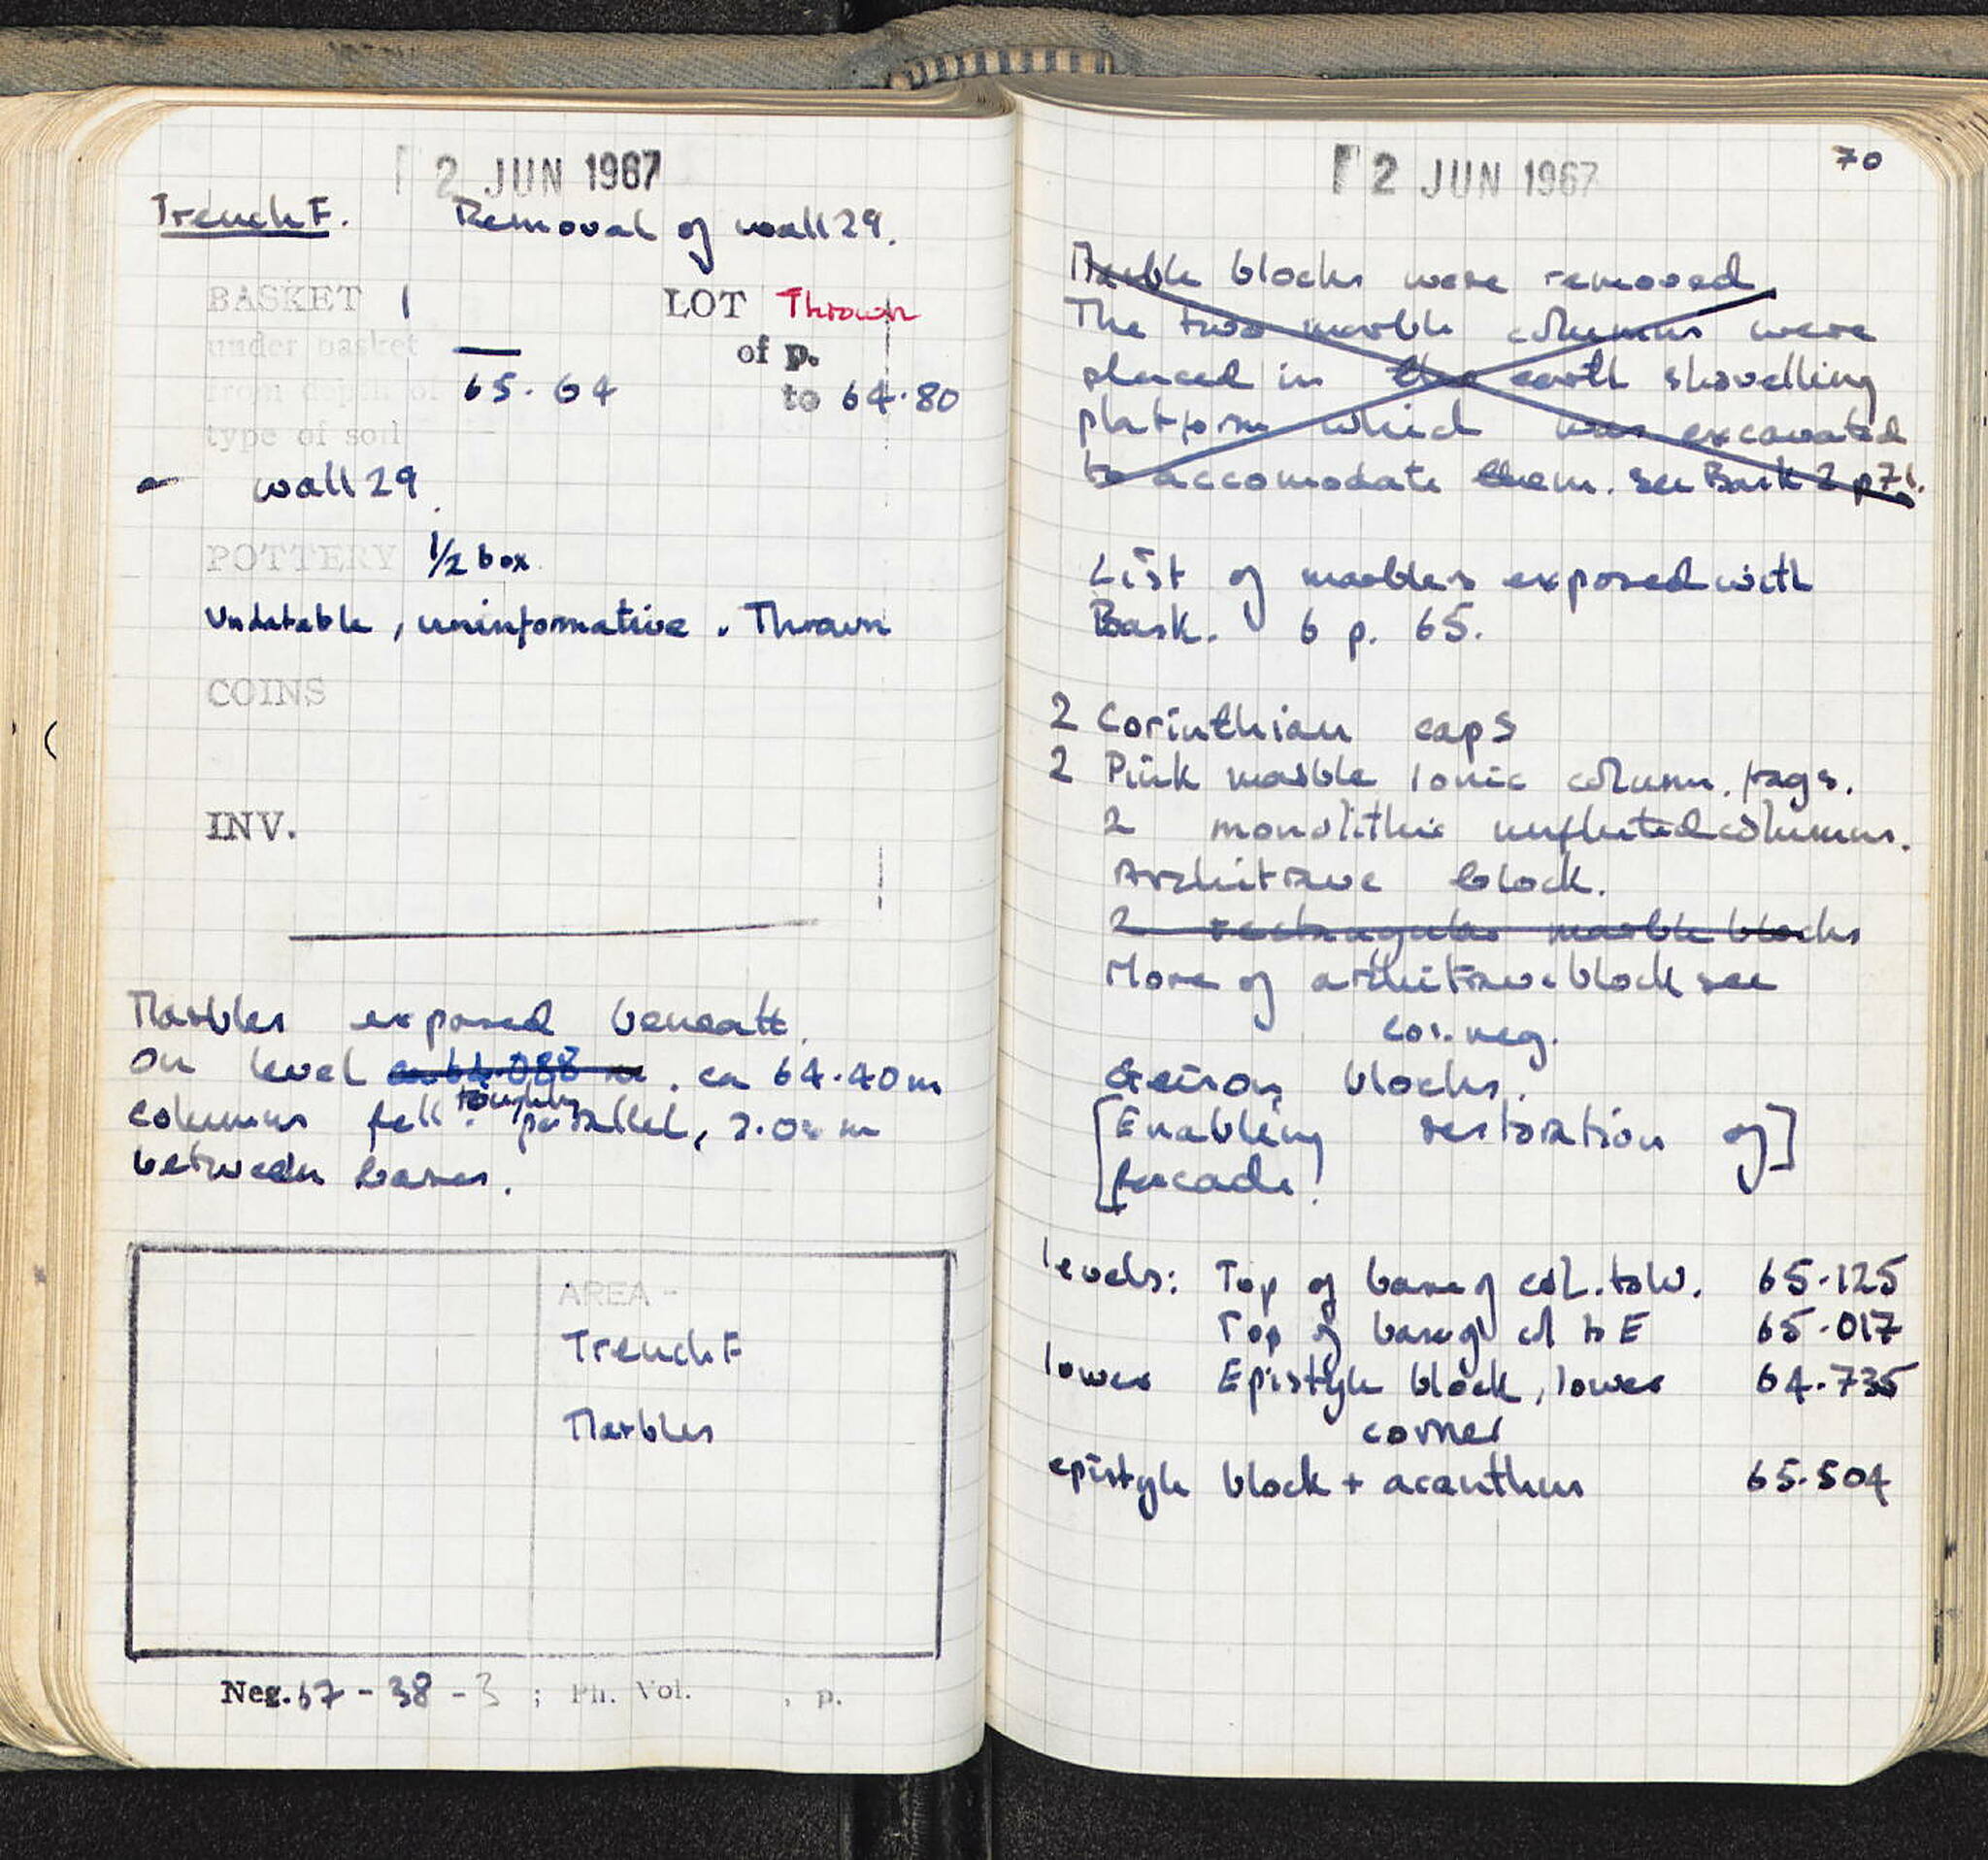 2 JUN 1967
Trench F. Removal of wall 29.
BASKET 1 LOT Thrown
under basket — of p.
from depth of 65.64 to 64.80
type of soil
– wall 29.
POTTERY 1/2 box.
Undatable, uninformative. Thrown
COINS
INV.
Marbles exposed beneath.
On level ca 64.088 m. ca 64.40 m
roughly
columns fell parallel, 2.08 m
between bases.
AREA -
Trench F
Marbles
Neg. 67 - 38 - 3 ; Ph. Vol. , p.
2 JUN 1967
70
Marble blocks were removed
The two marble columns were
placed in the earth shovelling
platform which was excavated
to accomodate them. See Bask 2 p71.
List of marbles exposed with
Bask. 6 p. 65.
2 Corinthian caps
2 Pink marble Ionic column frags.
2 monolithic unfluted columns.
Architrave block.
2 rectangular marble blocks
More of architrave block see
cor. neg.
Geison blocks.
[Enabling restoration of]
[facade!
levels: Top of base of col. to W. 65.125
Top of base of col to E 65.017
lower Epistyle block, lower 64.735
corner
epistyle block + acanthus 65.504